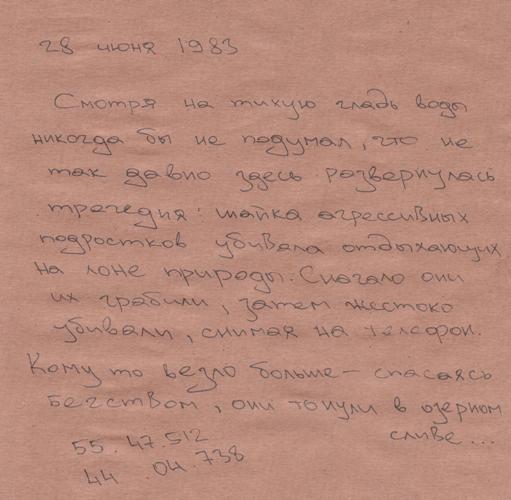 28 июня 1983
Смотря на тихую гладь воды
никогда бы не подумал, что не
так давно здесь развернулась
трагедия: шайка агрессивных
подростков убивала отдыхающих
на лоне природы. Сначало они
их грабили, затем жестоко
убивали, снимая на телефон.
Кому то везло больше - спасаясь
бегством, они тонули в озерном
сливе...
55.47.512
44.04.738